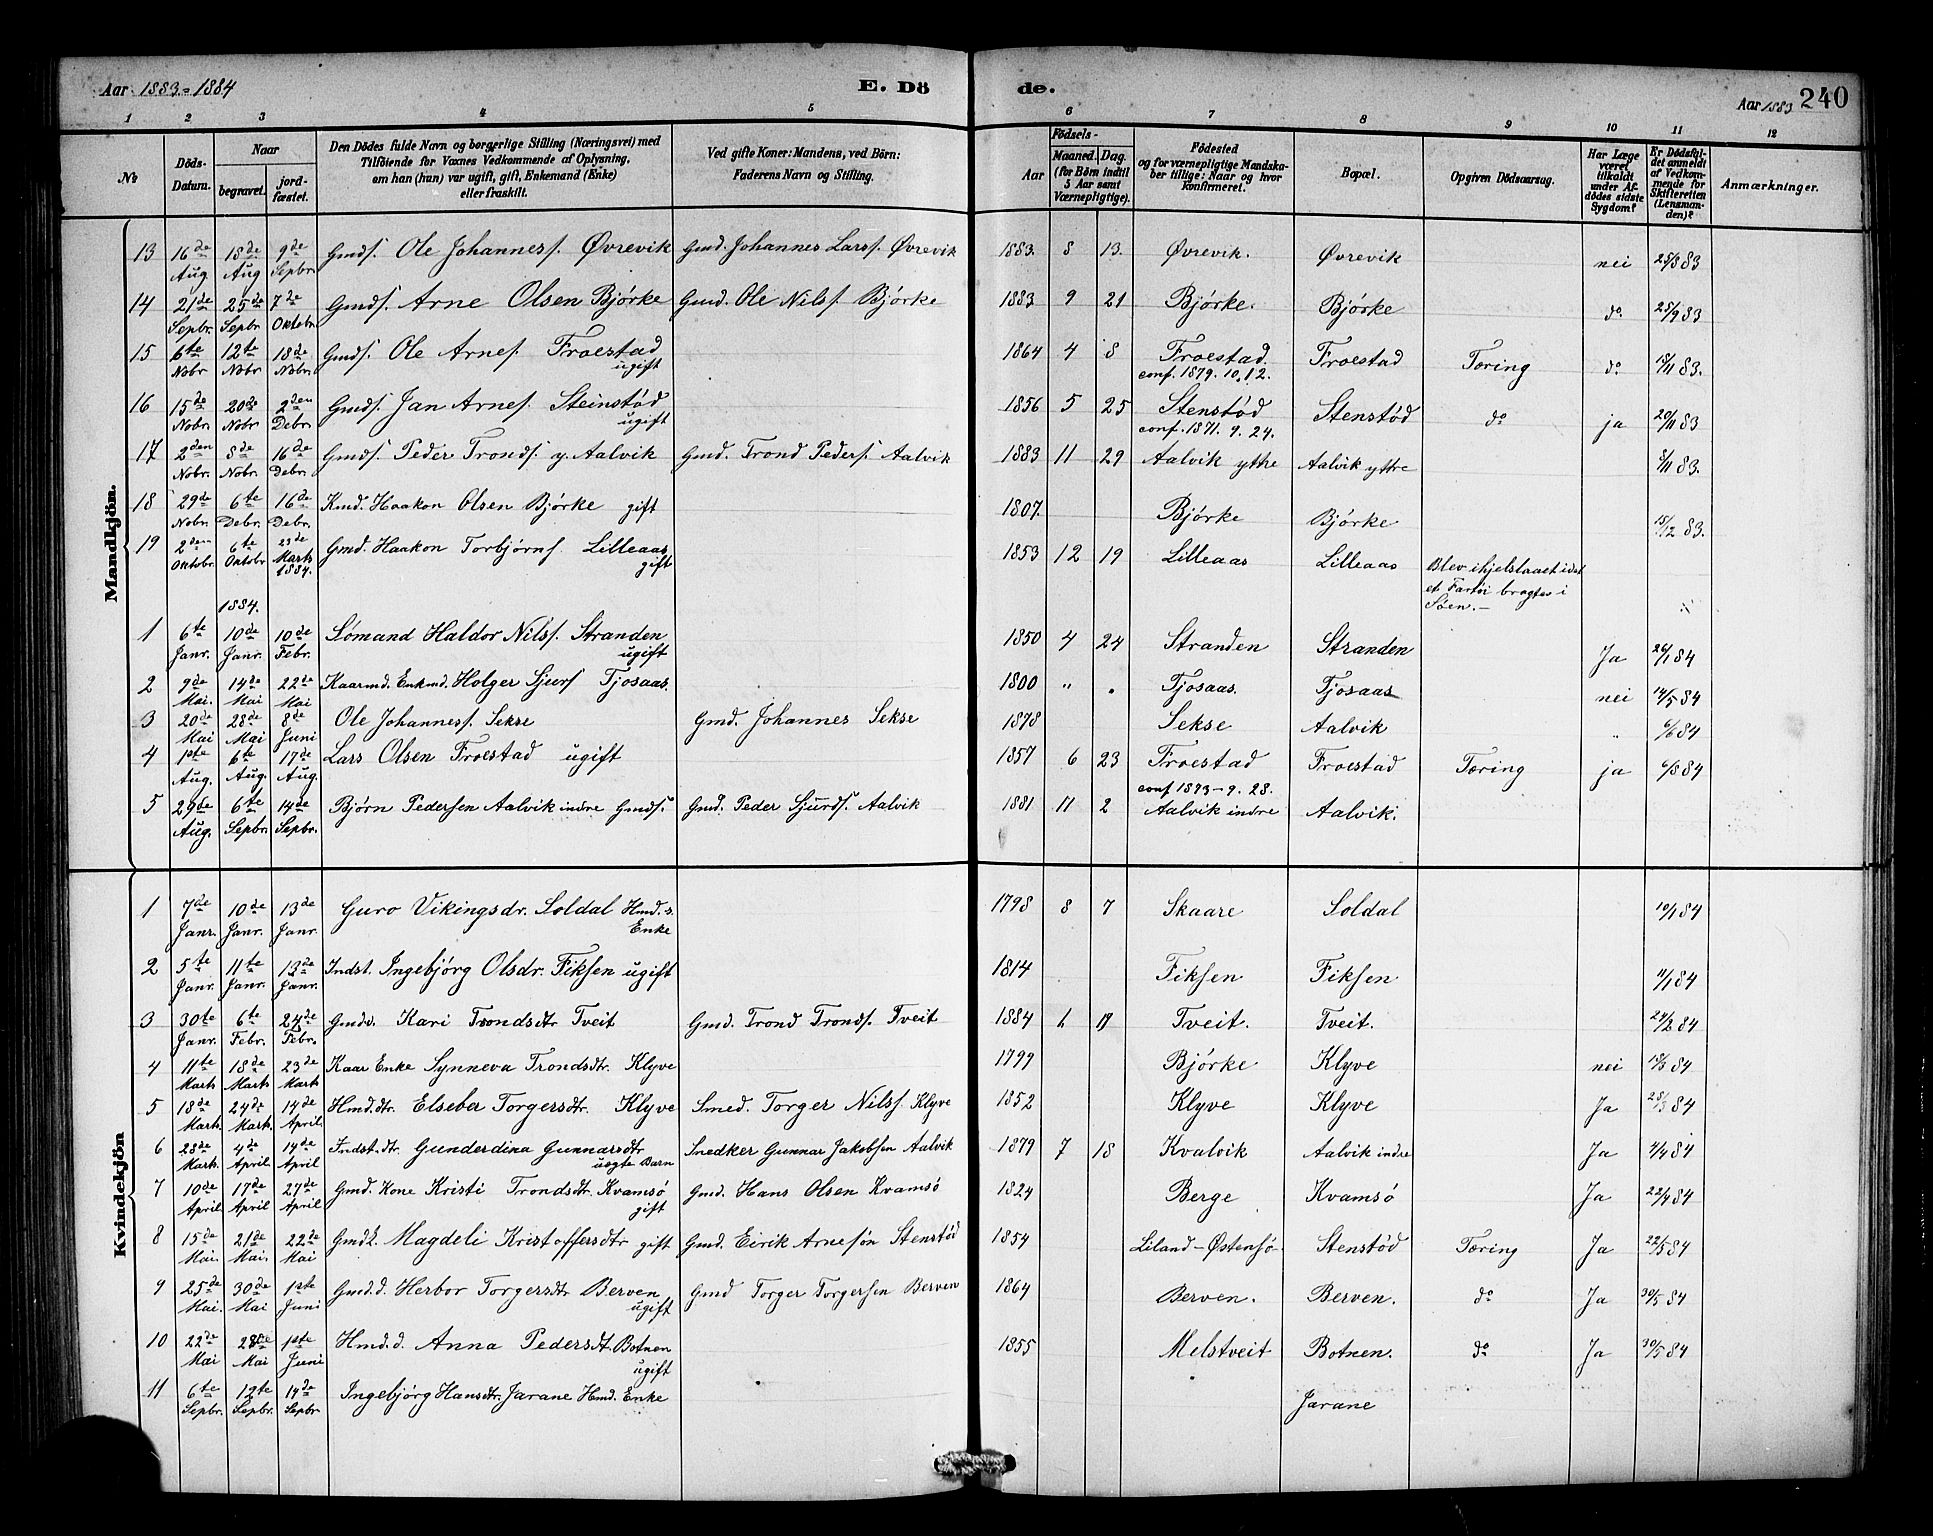 Aar 1883=1884 E. Dö de. Aar 1883 240
1 2 3 4 5 6 7 8 9 10 11 12
No
Döds-Datum.
Naar
begravet.
jord-fæstet.
Den Dödes fulde Navn og borgerlige Stilling (Næringsvei) med
Tilföiende for Voxnes Vedkommende af Oplysning,
om han (hun) var ugift, gift, Enkemand (Enke)
eller fraskilt.
Ved gifte Koner: Mandens, ved Börn:
Faderens Navn og Stilling.
Födsels-
Aar
Maaned.
Dag.
(for Börn indtil
5 Aar samt
Værnepligtige).
Födested
og for værnepligtige Mandska-
ber tillige: Naar og hvor
konfirmeret.
Bopæl.
Opgiven Dödsaarsag.
Har Læge
været
tilkaldt
under Af-
dödes sidste
Sygdom?
Er Dödsfal-
det anmeldt
af Vedkom-
mende for
Skifteretten
(Lensman-
den)?
Anmærkninger.
Mandkjön.
13 16de Aug. 18de Aug 9de Sepbr. Gmds. Ole Johanness. Øvrevik Gmd. Johannes Larss. Øvrevik 1883. 8 13. Øvrevik. Øvrevik nei 25/8 83
14 21de Sepbr. 25de Sepbr. 7de Oktobr. Gmds. Arne Olsen Bjørke Gmd. Ole Nilss Bjørke 1883 9 21 Bjørke. Bjørke do. 25/9 83
15 6te Nobr 12te Nobr 18de Nobr. Gmds. Ole Arnes. Froestad ugift 1864 4 8 Froestad. conf. 1879. 10.12. Froestad Tæring do 18/11 83.
16 15de Nobr. 20de Nobr 2den Debr. Gmds. Jan Arnes. Steinstød ugift 1856 5 25 Stenstød conf. 1871. 9. 24. Stenstød do ja 20/11 83
17 2den Nobr. 8de Nobr. 16de Debr. Gmds. Peder Tronds. y. Aalvik Gmd. Trond Peders. Aalvik 1883 11 29 Aalvik yttre Aalvik yttre 8/11 83.
18 29de Nobr. 6te Debr. 16de Debr. Kmd. Haakon Olsen Bjørke gift 1807. Bjørke Bjørke 15/12 83.
19 2den Oktobr. 6te Oktobr 23de Marts 1884. Gmd. Haakon Torbjørns. Lilleaas gift 1853 12 19 Lilleaas Lilleaas Blev ihjelslaaet idet et Fartøi bragtes i Søen. –
1884.
1 6te Janr. 10de Janr. 10de Febr. Sømand Haldor Nilss. Stranden ugift 1850 4 24 Stranden Stranden Ja 26/1 84
2 9de Mai. 14de Mai 22de Mai Kaarmd. Enkmd. Holger Sjurs Tjosaas. 1800 " Tjosaas. Tjosaas nei 14/5 84
3 20de Mai 28de Mai 8de Juni Ole Johanness. Sekse Gmd. Johannes Sekse 1878 Sekse Aalvik " 6/6 84
4 1ste Aug. 6te Aug. 17de Aug. Lars Olsen Froestad ugift 1857 6 23 Froestad conf 1873 – 9. 28. Froestad Tæring ja 6/8 84
5 29de Aug. 6te Sepbr. 14de Sepbr. Bjørn Pedersen Aalvik indre Gmds. Gmd. Peder Sjurds. Aalvik 1881 11 2 Aalvik indre Aalvik.
Kvindekjön
1 7de Janr. 10de Janr. 13de Janr. Guro Vikingsdr. Soldal Hmd.s. Enke 1798 8 7 Skaare Soldal 10/1 84
2 5te Janr. 11te Janr. 13de Janr. Indst. Ingebjørg Olsdr. Fiksen ugift 1814 Fiksen Fiksen 11/1 84
3 30te Janr. 6te Febr. 24de Febr. Gmdd. Kari Trondsdtr Tveit Gmd. Trond Tronds. Tveit 1884 Tveit. Tveit. 24/2 84
4 11te Marts 18de Marts 23de Marts Kaar Enke Synneva Trondsdtr. Klyve 1799 Bjørke Klyve nei 18/3 84
5 18de Marts. 24de Marts. 14de April. Hmd.dtr. Elseber Torgersdtr. Klyve Smed. Torger Nilss. Klyve 1852 Klyve Klyve Ja 28/3 84
6 28de Marts. 4de April. 14de April Indst.dtr. Gunderdina Gunnarsdtr uægte Barn Snedker Gunnar Jakobsen Aalvik 1879 7 18 Kvalvik Aalvik indre Ja 4/4 84
7 10de April 17de April 27de April Gmd. Kone Kristi Trondsdtr. Kvamsø gift Gmd. Hans Olsen Kvamsø 1824 Berge Kvamsø Ja 22/4 84
8 15de Mai. 21de Mai. 22de Mai Gmdk. Magdeli Kristoffersdtr gift Gmd. Eirik Arnesøn Stenstød 1854 Liland – Østensø. Stenstød Tæring Ja 22/5 84
9 25de Mai. 30de Mai 1ste Juni Gmd.d. Herbor Torgersdtr Berven ugift Gmd Torger Torgersen Berven 1864 Berven. Berven. do Ja 30/5 84
10 22de Mai 28de Mai 1ste Juni Hmd.d. Anna Pedersdt. Botnen ugift 1855 Melstveit Botnen. do Ja 30/5 84
11 6te Sepbr. 12te Sepbr. 14de Sepbr Ingebjørg Hansdtr. Jarane Hmd. Enke Jarane